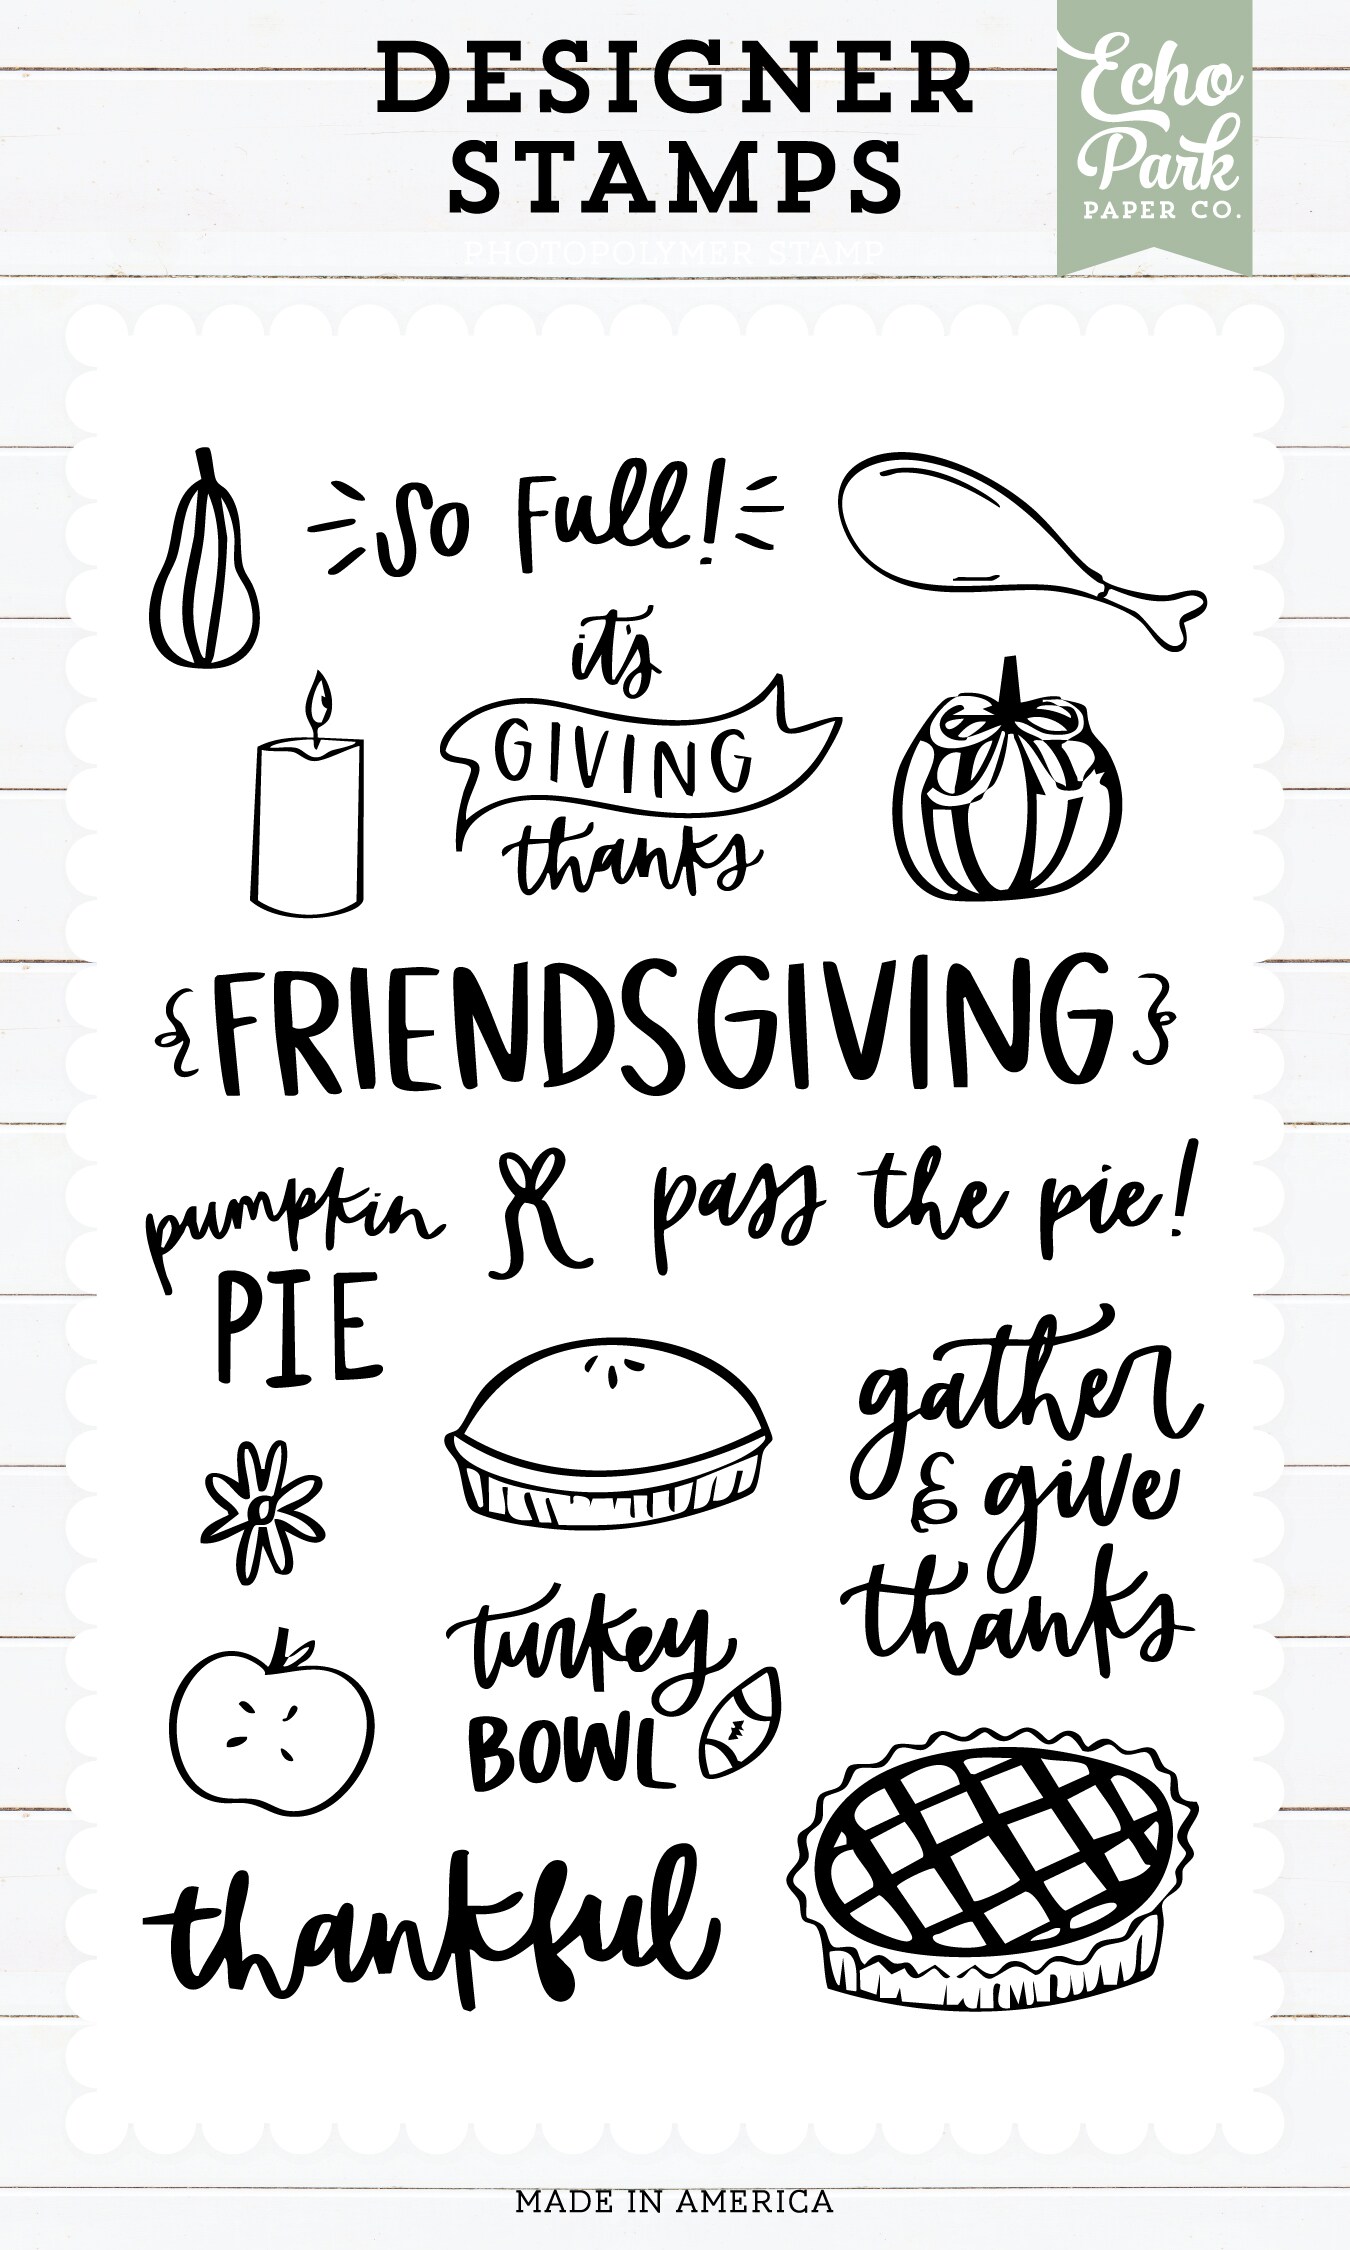 DESIGNER
STAMPS
PHOTOPOLYMER STAMP
Echo
Park
PAPER CO.
so Full!
it's
GIVING
thanks
{FRIENDSGIVING}
pumpkin
PIE
pass the pie!
gather
& give
thanks
turkey
BOWL
thankful
MADE IN AMERICA